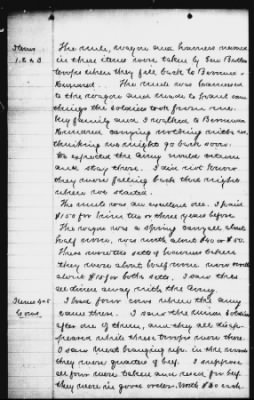 Items
1, 2, & 3
The mule, wagon and harness named
in these items were taken by Gen Butlers
troops when they fell back to Bermuda
Hundred. The mule was harnessed
to the wagon and made to haul some
things the soldiers took from me.
My family and I walked to Bermuda
Hundred carrying nothing with us,
thinking we might go back soon.
We expected the army would return
and stay there. I did not know
they were falling back that night
when we started.
The mule was an excellent one. I paid
$150 for him two or three years before
The wagon was a spring carryall about
half worn, was worth about $40 or $50.
There were two setts of harness
they were about half worn
about $15 for both setts. I saw them
all driven away with the army.
Items 4 & 5
Cows
I had four cows when the army
came there. I saw the Union Soldiers
after one of them, and they all disap-
peared while these troops were there.
I saw meat hanging up in the
they were quarters of beef. I suppose
all four were taken and used for beef
they were in good order. Worth $30 each.